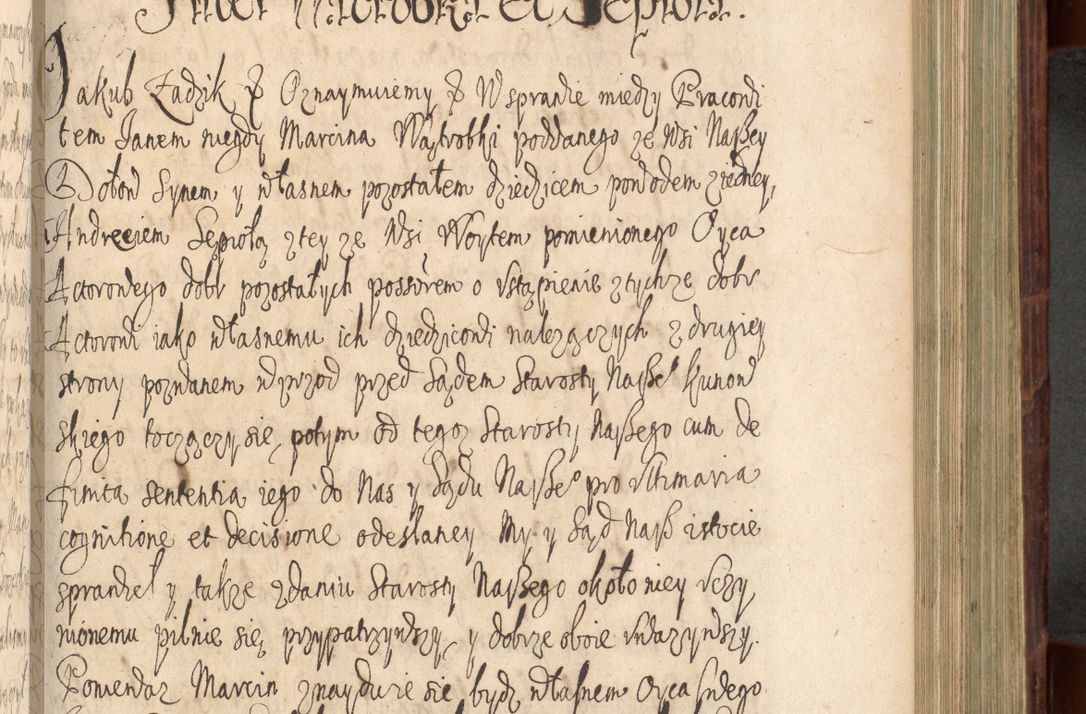 Inter Watrobka et Sępiola.
Jakub Zadzik & Oznaymuiemy & W sprawie miedzy Pracowi
tem Janem niegdy Marcina Wątrobki poddanego ze Wsi Naßey
Synem y własnem pozostałem dziedzicem powodem z iedney,
Andrzeiem Sępiołą z tey ze Wsi Woytem pomienionego Oyca
Actorowego dobr pozostałych possorem o vstąpienie z tychze dobr
Actorowi iako własnemu ich dziedzicowi nalezączych z drugiey
strony pozwanem wprzod przed Sądem Starosty Naße Kunow
skiego toczączy się, potym od tego Starosty Naßego cum de
finita sententia iego do Nas y Sądu Naße pro vltimaria
cognitione et decisione odesłaney My y Sąd Naß istocie
sprawie y takze zdaniu Starosty Naßego około niey vczy
nionemu pilnie się przypatrzywszy, y dobrze oboie vwazywszy.
Poniewaz Marcin znayduie się bydz własnem Oyca swego